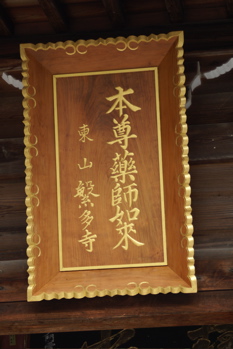 本尊藥師如来
東山繁多寺